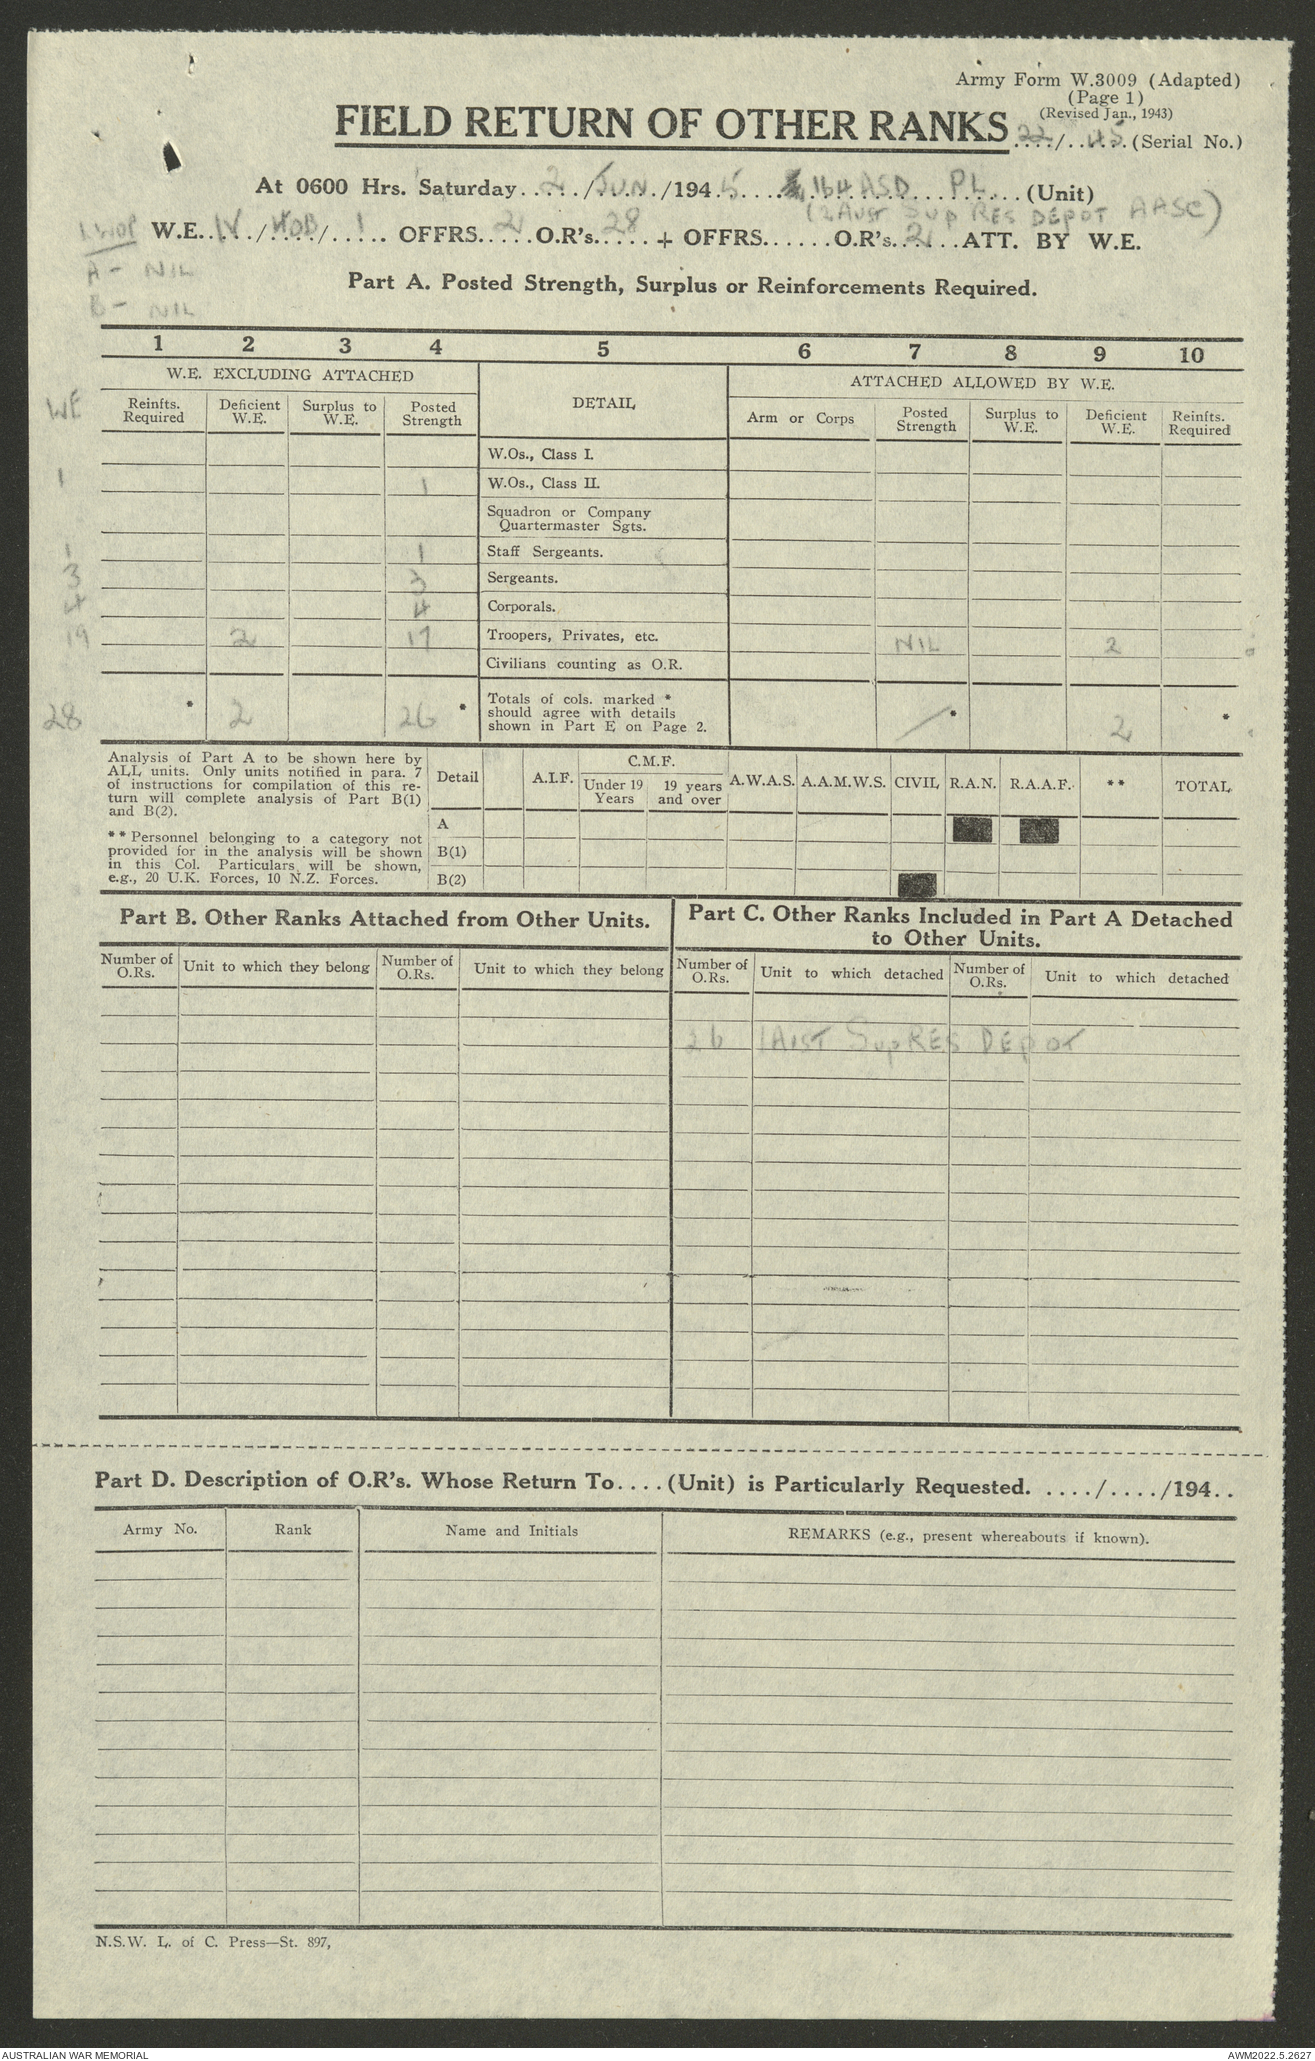 Army Form W.3009 (Adapted)
(Page 1)
(Revised Jan., 1943)
FIELD RETURN OF OTHER RANKS 22/45 (Serial No.)
At 0600 Hrs. Saturday 2/JUN/1945 164 ASD PL (Unit)
(2 AUST SUP RES DEPOT AASC)
LWOP W.E. IV/HOB/1 OFFRS. O.R's. 28 + OFFRS...... O.R's. 2 ATT. BY W.E.
A - NIL
B - NIL
Part A. Posted Strength, Surplus or Reinforcements Required.
1 2 3 4 5 6 7 8 9 10
W.E. EXCLUDING ATTACHED DETAIL ATTACHED ALLOWED BY W.E.
WE Reinfts. Required Deficient W.E. Surplus to W.E. Posted Strength Arm or Corps Posted Strength Surplus to W.E. Deficient W.E. Reinfts. Required
W.Os., Class I.
1 1 W.Os., Class II.
Squadron or Company
Quartermaster Sgts.
1 1 Staff Sergeants.
3 3 Sergeants.
4 4 Corporals.
19 2 17 Troopers, Privates, etc. NIL 2
Civilians counting as O.R.
28 * 2 26 * Totals of cols. marked * / * 2 *
should agree with details
shown in Part E on Page 2.
Analysis of Part A to be shown here by
ALL units. Only units notified in para. 7
of instructions for compilation of this re-
turn will complete analysis of Part B(1)
and B(2).
** Personnel belonging to a category not
provided for in the analysis will be shown
in this Col. Particulars will be shown,
e.g., 20 U.K. Forces, 10 N.Z. Forces.
Detail A.I.F. C.M.F. Under 19 Years 19 years and over A.W.A.S. A.A.M.W.S. CIVIL R.A.N. R.A.A.F. ** TOTAL
A
B(1)
B(2)
Part B. Other Ranks Attached from Other Units.
Number of O.Rs. Unit to which they belong Number of O.Rs. Unit to which they belong
Part C. Other Ranks Included in Part A Detached
to Other Units.
Number of O.Rs. Unit to which detached Number of O.Rs. Unit to which detached
26 1 AUST SUP RES DEPOT
Part D. Description of O.R's. Whose Return To.... (Unit) is Particularly Requested. ..../..../194..
Army No. Rank Name and Initials REMARKS (e.g., present whereabouts if known).
N.S.W. L. of C. Press—St. 897,
AUSTRALIAN WAR MEMORIAL AWM2022.5.2627